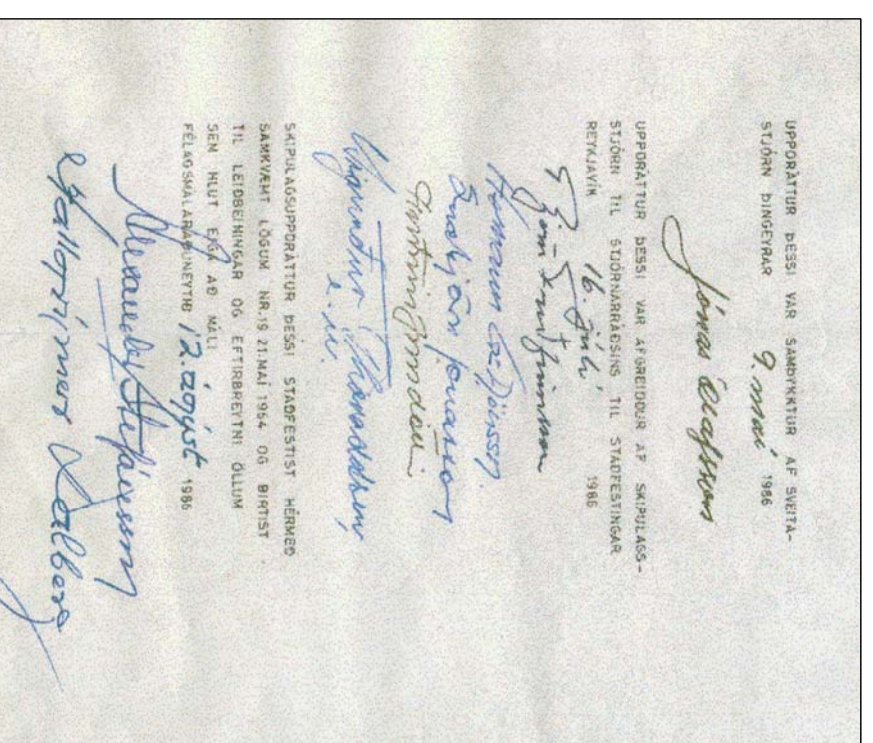 UPPDRÁTTUR ÞESSI VAR SAMÞYKKTUR AF SVEITA-
STJÓRN ÞINGEYRAR 9. maí 1986
Jónas Ólafsson
UPPDRÁTTUR ÞESSI VAR AFGREIDDUR AF SKIPULAGS-
STJÓRN TIL STJÓRNARRÁÐSINS TIL STAÐFESTINGAR
REYKJAVÍK 16. júlí 1986
Björn Friðfinnsson
Guðjón Jónasson
SKIPULAGSUPPDRÁTTUR ÞESSI STAÐFESTIST HÉRMEÐ
SAMKVÆMT LÖGUM NR.19 21.MAÍ 1964 OG BIRTIST
TIL LEIÐBEININGAR OG EFTIRBREYTNI ÖLLUM
SEM HLUT EIGA AÐ MÁLI
FÉLAGSMÁLARÁÐUNEYTIÐ 12. ágúst 1986
Alexander Stefánsson
Hallgrímur Dalberg